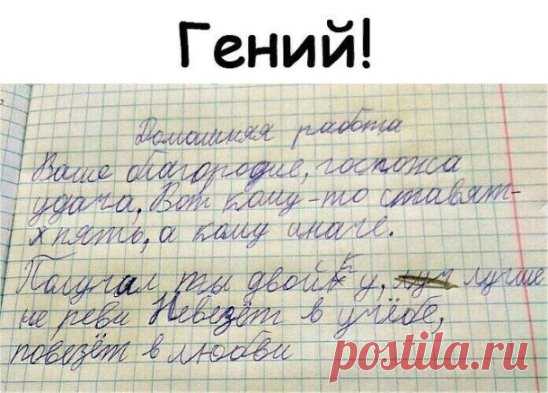 Гений!
Домашняя работа
Ваше благородие, госпожа
удача, Вот кому-то ставят-
х пять, а кому иначе.
Получил ты двойку, лучше
не реви Невезёт в учёбе,
повезёт в любви
postila.ru